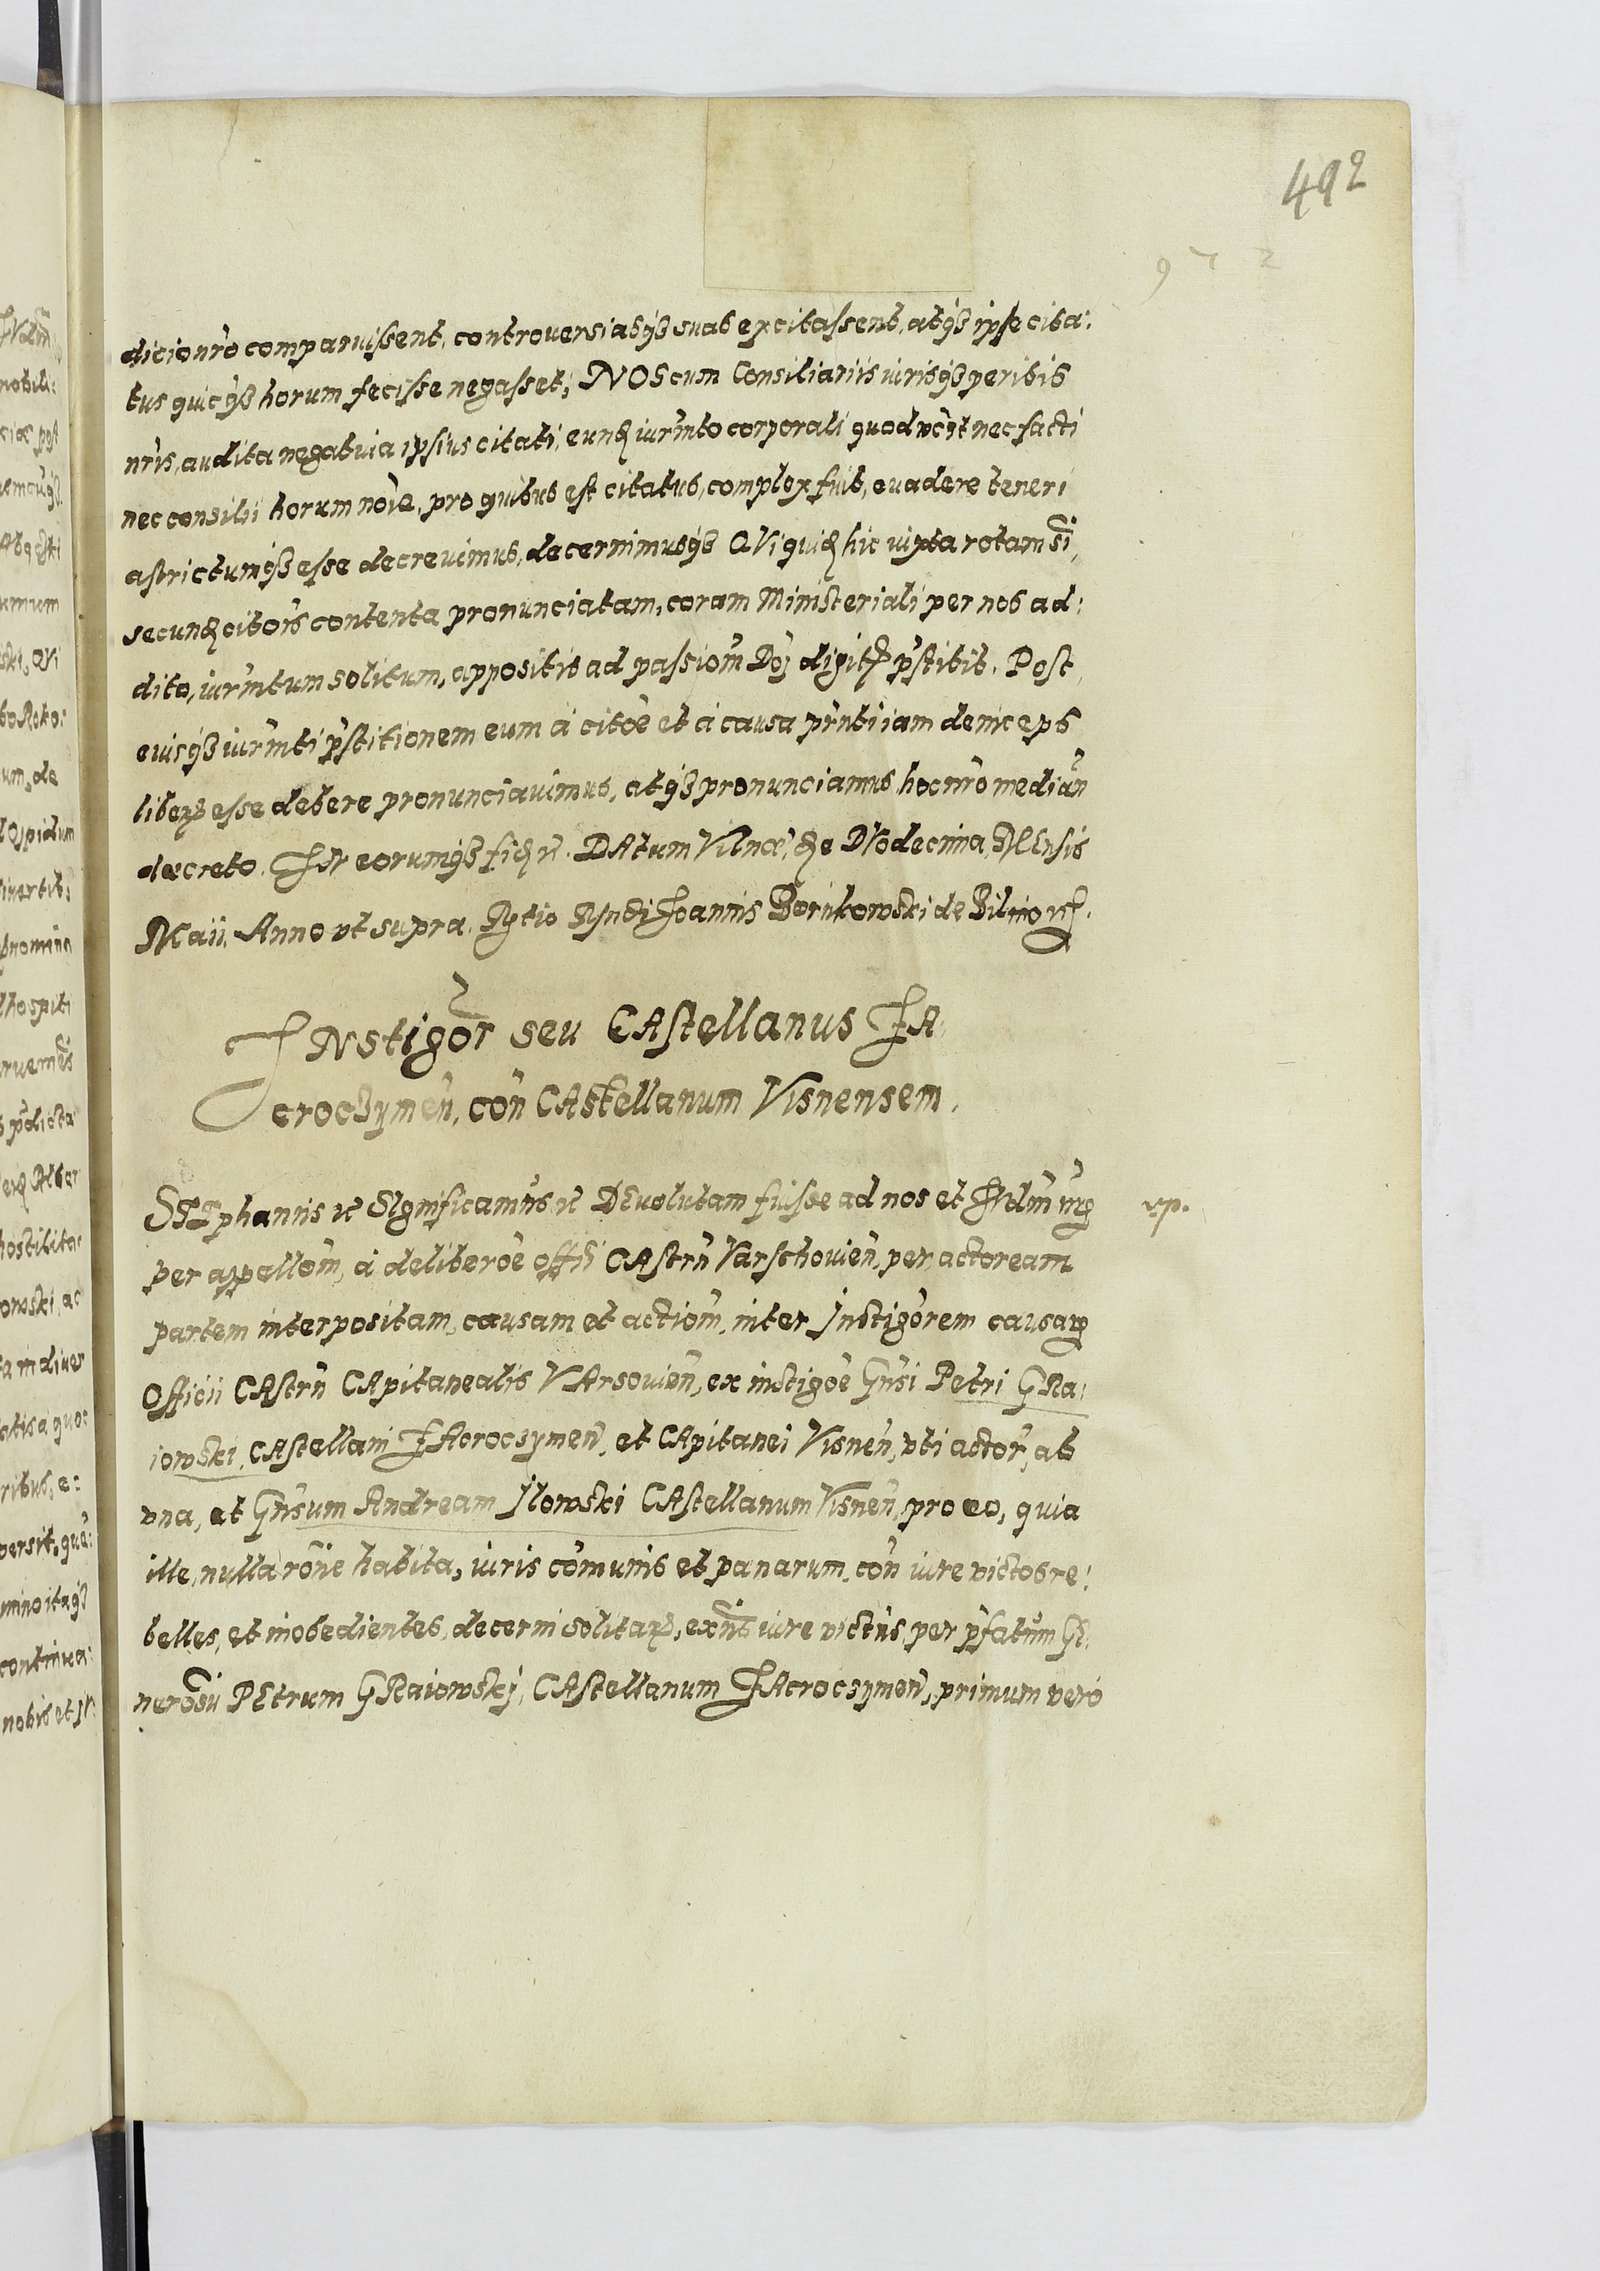 492
dicionrō comparuissent, controuersiasqз suas excitassent, atqз ipse cita:
tus quicqз horum fecisse negasset; NOS cum Consiliariis iurisqз peritis
nr̄is, audita negatiua ipsius citati, eund iurm̄to corporali quod nec facti
nec consilii horum noīe, pro quibus est citatus, complex fuit, euadere teneri
astrictumqз esse decreuimus, decernimusqз QVi quid hic iuxta rotam sī
secund citōis contenta pronunciatam, coram Ministeriali per nos ad:
dito, iurm̄tum solitum, appositis ad passiom̄ Doj digit p̄stitit. Post
eiusqз iurm̄ti p̄stitionem eum á citōe et á causa pr̄nti iam deinceps
liber esse debere pronunciauimus, atqз pronunciamus hoc nr̄o median̄
decreto. IN eorumqз fid rc. DAtum Vilnæ, De DVodecima MEnsis
Maii. Anno vt supra. Rltio Rndi Joannis Bornkowski de Bilino
INstigōr seu CAstellanus IA
croczymen̄, con̄ CAstellanum Visnensem.
STEphanus rc SIgnificamus rc DEuolutam fuisse ad nos et Iudm̄ nr̄
rp.
per appellom̄, á deliberōe offīi CAstrn̄ Varschouien̄, per actoream
partem interpositam, causam et actiom̄, inter Instigōrem causar
Officii CAstrn̄ CApitanealis VArsouien̄, ex instigōe Gn̄si Petri GRa:
iowski, CAstellani IAcrocsymen̄, et CApitanei Visnen̄, vti actor̄, ab
vna, et Gn̄sum Andream Jlowski CAstellanum Visnen̄, pro eo, quia
ille, nulla rōne habita, iuris com̄unis et panarum, con̄ iure victos re:
belles, et inobedientes, decerni solitar, exn̄s iure victus per p̄fatum GE
nerosū PEtrum GRaiowskj, CAstellanum IAcrocsymen̄, primum vero